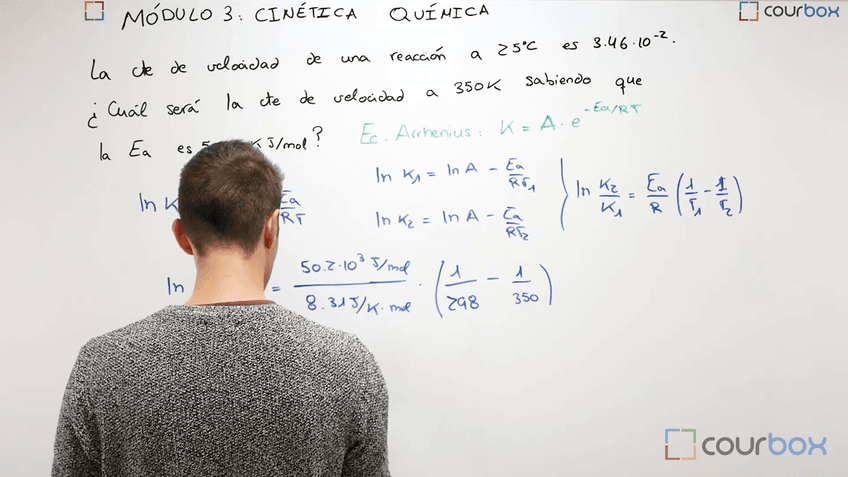 MÓDULO 3: CINÉTICA QUÍMICA
courbox
La cte de velocidad de una reacción a 25°C es 3.46·10⁻².
¿Cuál será la cte de velocidad a 350K sabiendo que
la Ea es KJ/mol?
Ec. Arrhenius: K = A·e^(-Ea/RT)
ln K Ea/RT
ln K₁ = ln A - Ea/RT₁
ln K₂ = ln A - Ea/RT₂
ln K₂/K₁ = Ea/R (1/T₁ - 1/T₂)
ln = 50.2·10³ J/mol / 8.31 J/K·mol · (1/298 - 1/350)
courbox